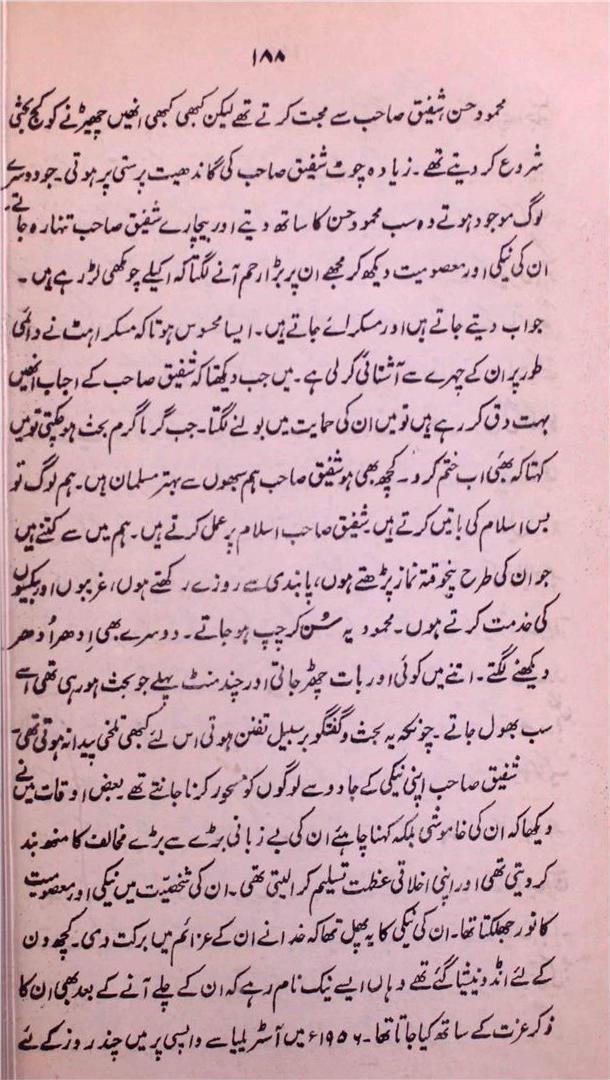 ۱۸۸
محمود حسن شفیق صاحب سے محبت کرتے تھے لیکن کبھی کبھی انھیں چھیڑنے کو کج بحثی
شروع کر دیتے تھے۔ زیادہ چوٹ شفیق صاحب کی گاندھیت پرستی پر ہوتی۔ جو دوسرے
لوگ موجود ہوتے وہ سب محمود حسن کا ساتھ دیتے اور بیچارے شفیق صاحب تنہا رہ جاتے۔
ان کی نیکی اور معصومیت دیکھ کر مجھے ان پر بڑا رحم آنے لگتا کہ اکیلے چومکھی لڑ رہے ہیں۔
جواب دیتے جاتے ہیں اور مسکرائے جاتے ہیں۔ ایسا محسوس ہوتا کہ مسکراہٹ نے دائمی
طور پر ان کے چہرے سے آشنائی کر لی ہے۔ میں جب دیکھتا کہ شفیق صاحب کے احباب انھیں
بہت دق کر رہے ہیں تو میں ان کی حمایت میں بولنے لگتا۔ جب گرما گرم بحث ہو چکتی تو میں
کہتا کہ بھئی اب ختم کرو۔ کچھ بھی ہو شفیق صاحب ہم سبھوں سے بہتر مسلمان ہیں۔ ہم لوگ تو
بس اسلام کی باتیں کرتے ہیں شفیق صاحب اسلام پر عمل کرتے ہیں۔ ہم میں سے کتنے ہیں
جو ان کی طرح پنجوقتہ نماز پڑھتے ہوں، پابندی سے روزے رکھتے ہوں، غریبوں اور بیکسوں
کی خدمت کرتے ہوں۔ محمود یہ سُن کر چپ ہو جاتے۔ دوسرے بھی اِدھر اُدھر
دیکھنے لگتے۔ اتنے میں کوئی اور بات چھڑ جاتی اور چند منٹ پہلے جو بحث ہو رہی تھی اسے
سب بھول جاتے۔ چونکہ یہ بحث و گفتگو برسبیل تفنن ہوتی اس لئے کبھی تلخی پیدا نہ ہوتی تھی۔
شفیق صاحب اپنی نیکی کے جادو سے لوگوں کو مسحور کرنا جانتے تھے بعض اوقات میں نے
دیکھا کہ ان کی خاموشی بلکہ کہنا چاہئے ان کی بے زبانی بڑے سے بڑے مخالف کا منھ بند
کر دیتی تھی اور اپنی اخلاقی عظمت تسلیم کرا لیتی تھی۔ ان کی شخصیّت میں نیکی اور معصومیت
کا نور جھلکتا تھا۔ ان کی نیکی کا یہ پھل تھا کہ خدا نے ان کے عزائم میں برکت دی۔ کچھ دن
کے لئے انڈونیشیا گئے تھے وہاں ایسے نیک نام رہے کہ ان کے چلے آنے کے بعد بھی ان کا
ذکر عزت کے ساتھ کیا جاتا تھا۔ ۱۹۵۶ء میں آسٹریلیا سے واپسی پر میں چند روز کے لئے